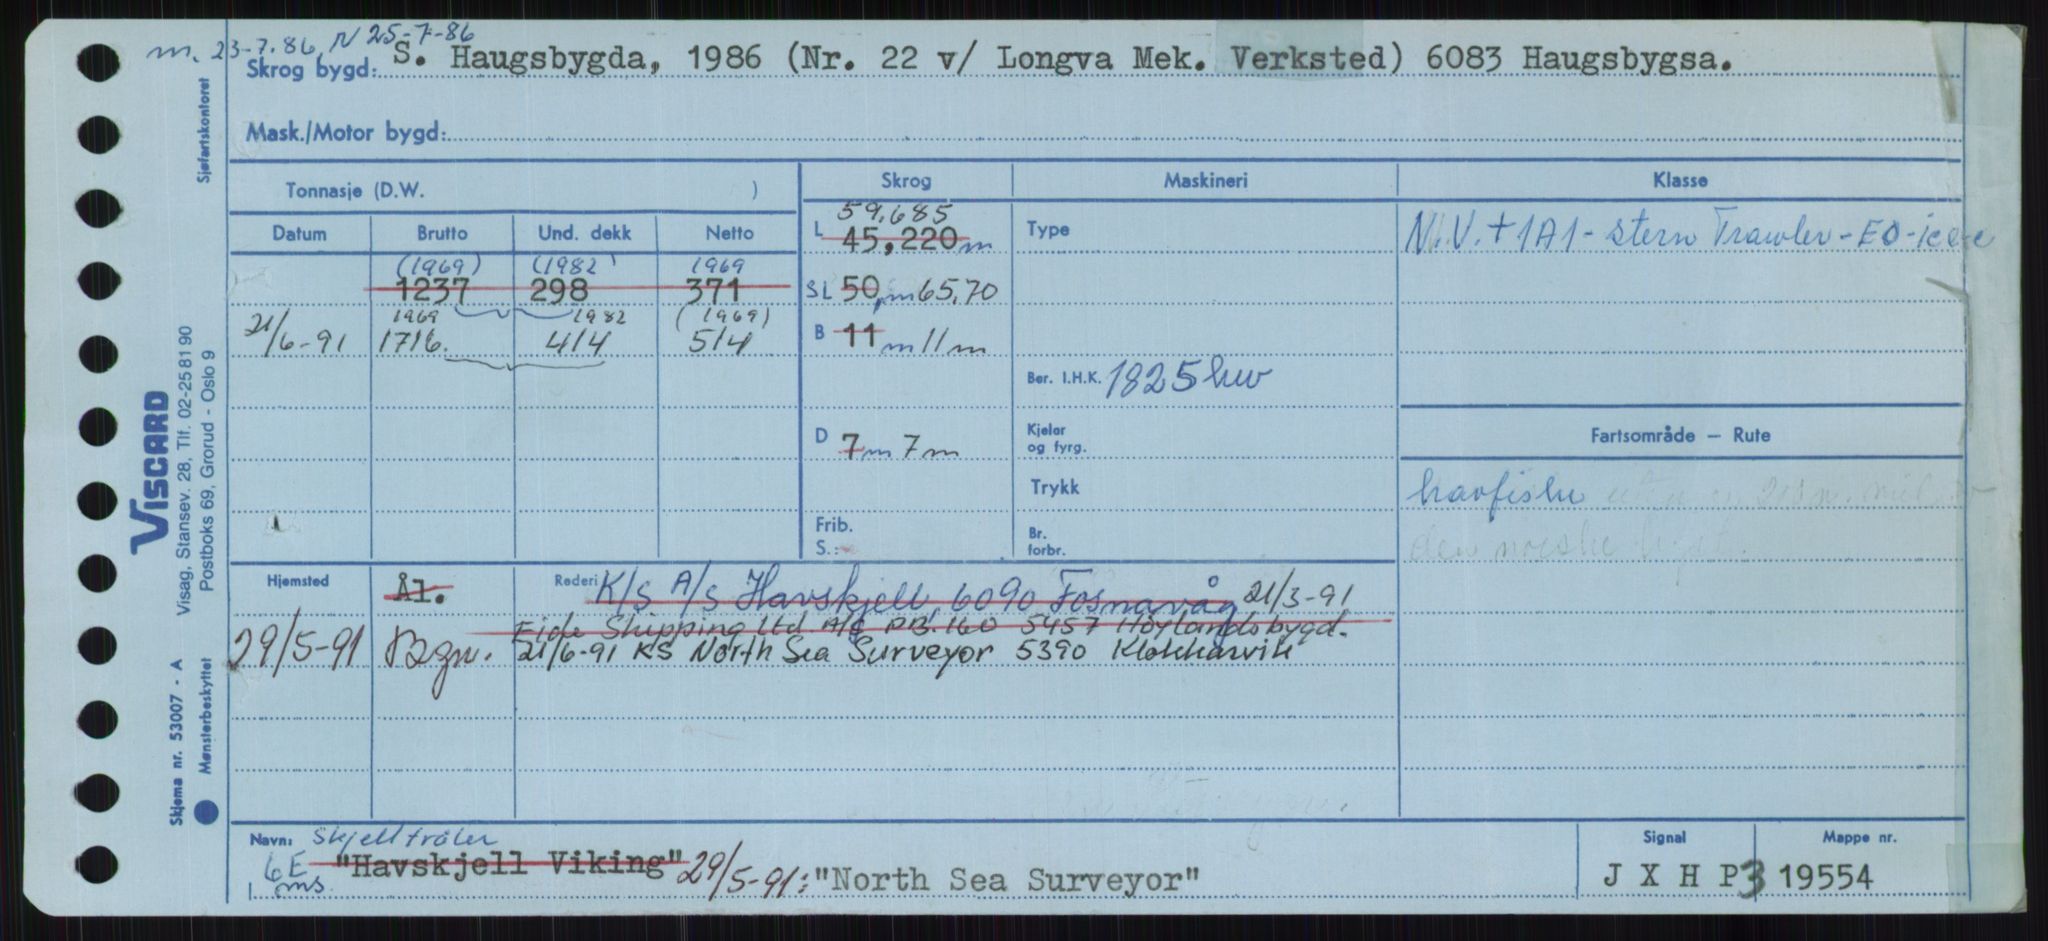 m. 23-7.86, N 25-7-86
Skrog bygd: S. Haugsbygda, 1986 (Nr. 22 v/ Longva Mek. Verksted) 6083 Haugsbygsa.
Mask./Motor bygd:
Sjøfartskontoret
Tonnasje (D.W. )
Skrog
Maskineri
Klasse
Datum
Brutto
Und. dekk
Netto
(1969) (1982) 1969
1237 298 371
1969 1982 (1969)
21/6-91 1716. 414 514
59.685
L 45,220 m
SL 50,m 65,70
B 11 m 11 m
D 7 m 7 m
Frib.
S.:
Type
Ber. I.H.K. 1825 kw
Kjeler
og fyrg.
Trykk
Br.
forbr.
N.V. + 1A1 - Stern Trawler - EO - ice-c
Fartsområde — Rute
havfiske
den norske
Hjemsted
Ål.
Rederi K/S A/S Havskjell, 6090 Fosnavåg 21/3-91
Eide Shipping Ltd A/S P.B. 160 5457 Høylandsbygd.
29/5-91 Bgn. 21/6-91 KS North Sea Surveyor 5390 Klokkarvik
Navn: Skjelltråler
6E
ms. "Havskjell Viking" 29/5-91: "North Sea Surveyor"
Signal
J X H P 3
Mappe nr.
19554
VISCARD
Visag, Stansev. 28, Tlf. 02-25 81 90
Postboks 69, Grorud - Oslo 9
Skjema nr. 53007 - A
Mønsterbeskyttet